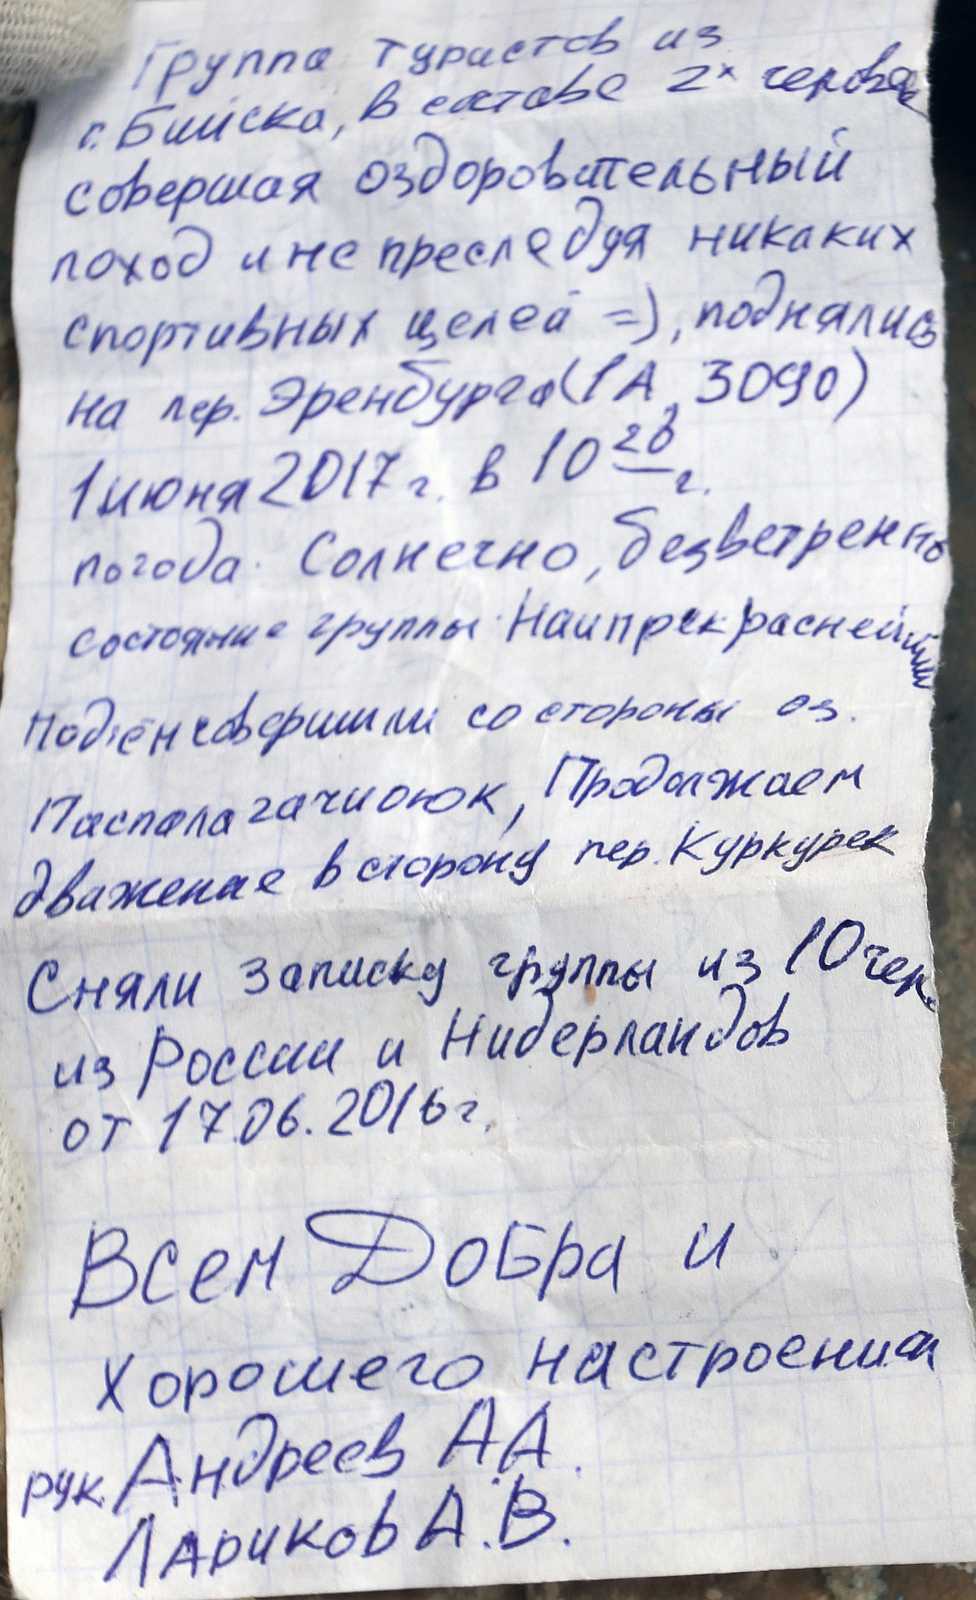 Группа туристов из
г. Бийска, в составе 2х человек
совершая оздоровительный
поход и не преследуя никаких
спортивных целей =), поднялись
на пер. Эренбурга (1А, 3090)
1 июня 2017 г. в 10 20 г.
погода. Солнечно, безветренно
состояние группы. Наипрекраснейшее
Подъём совершили со стороны оз.
Распалагачиоюк, Продолжаем
движение в сторону пер. Куркурек
Сняли записку группы из 10 чел.
из России и Нидерландов
от 17.06.2016 г.
Всем Добра и
хорошего настроения
рук. Андреев А.А.
Лариков А.В.